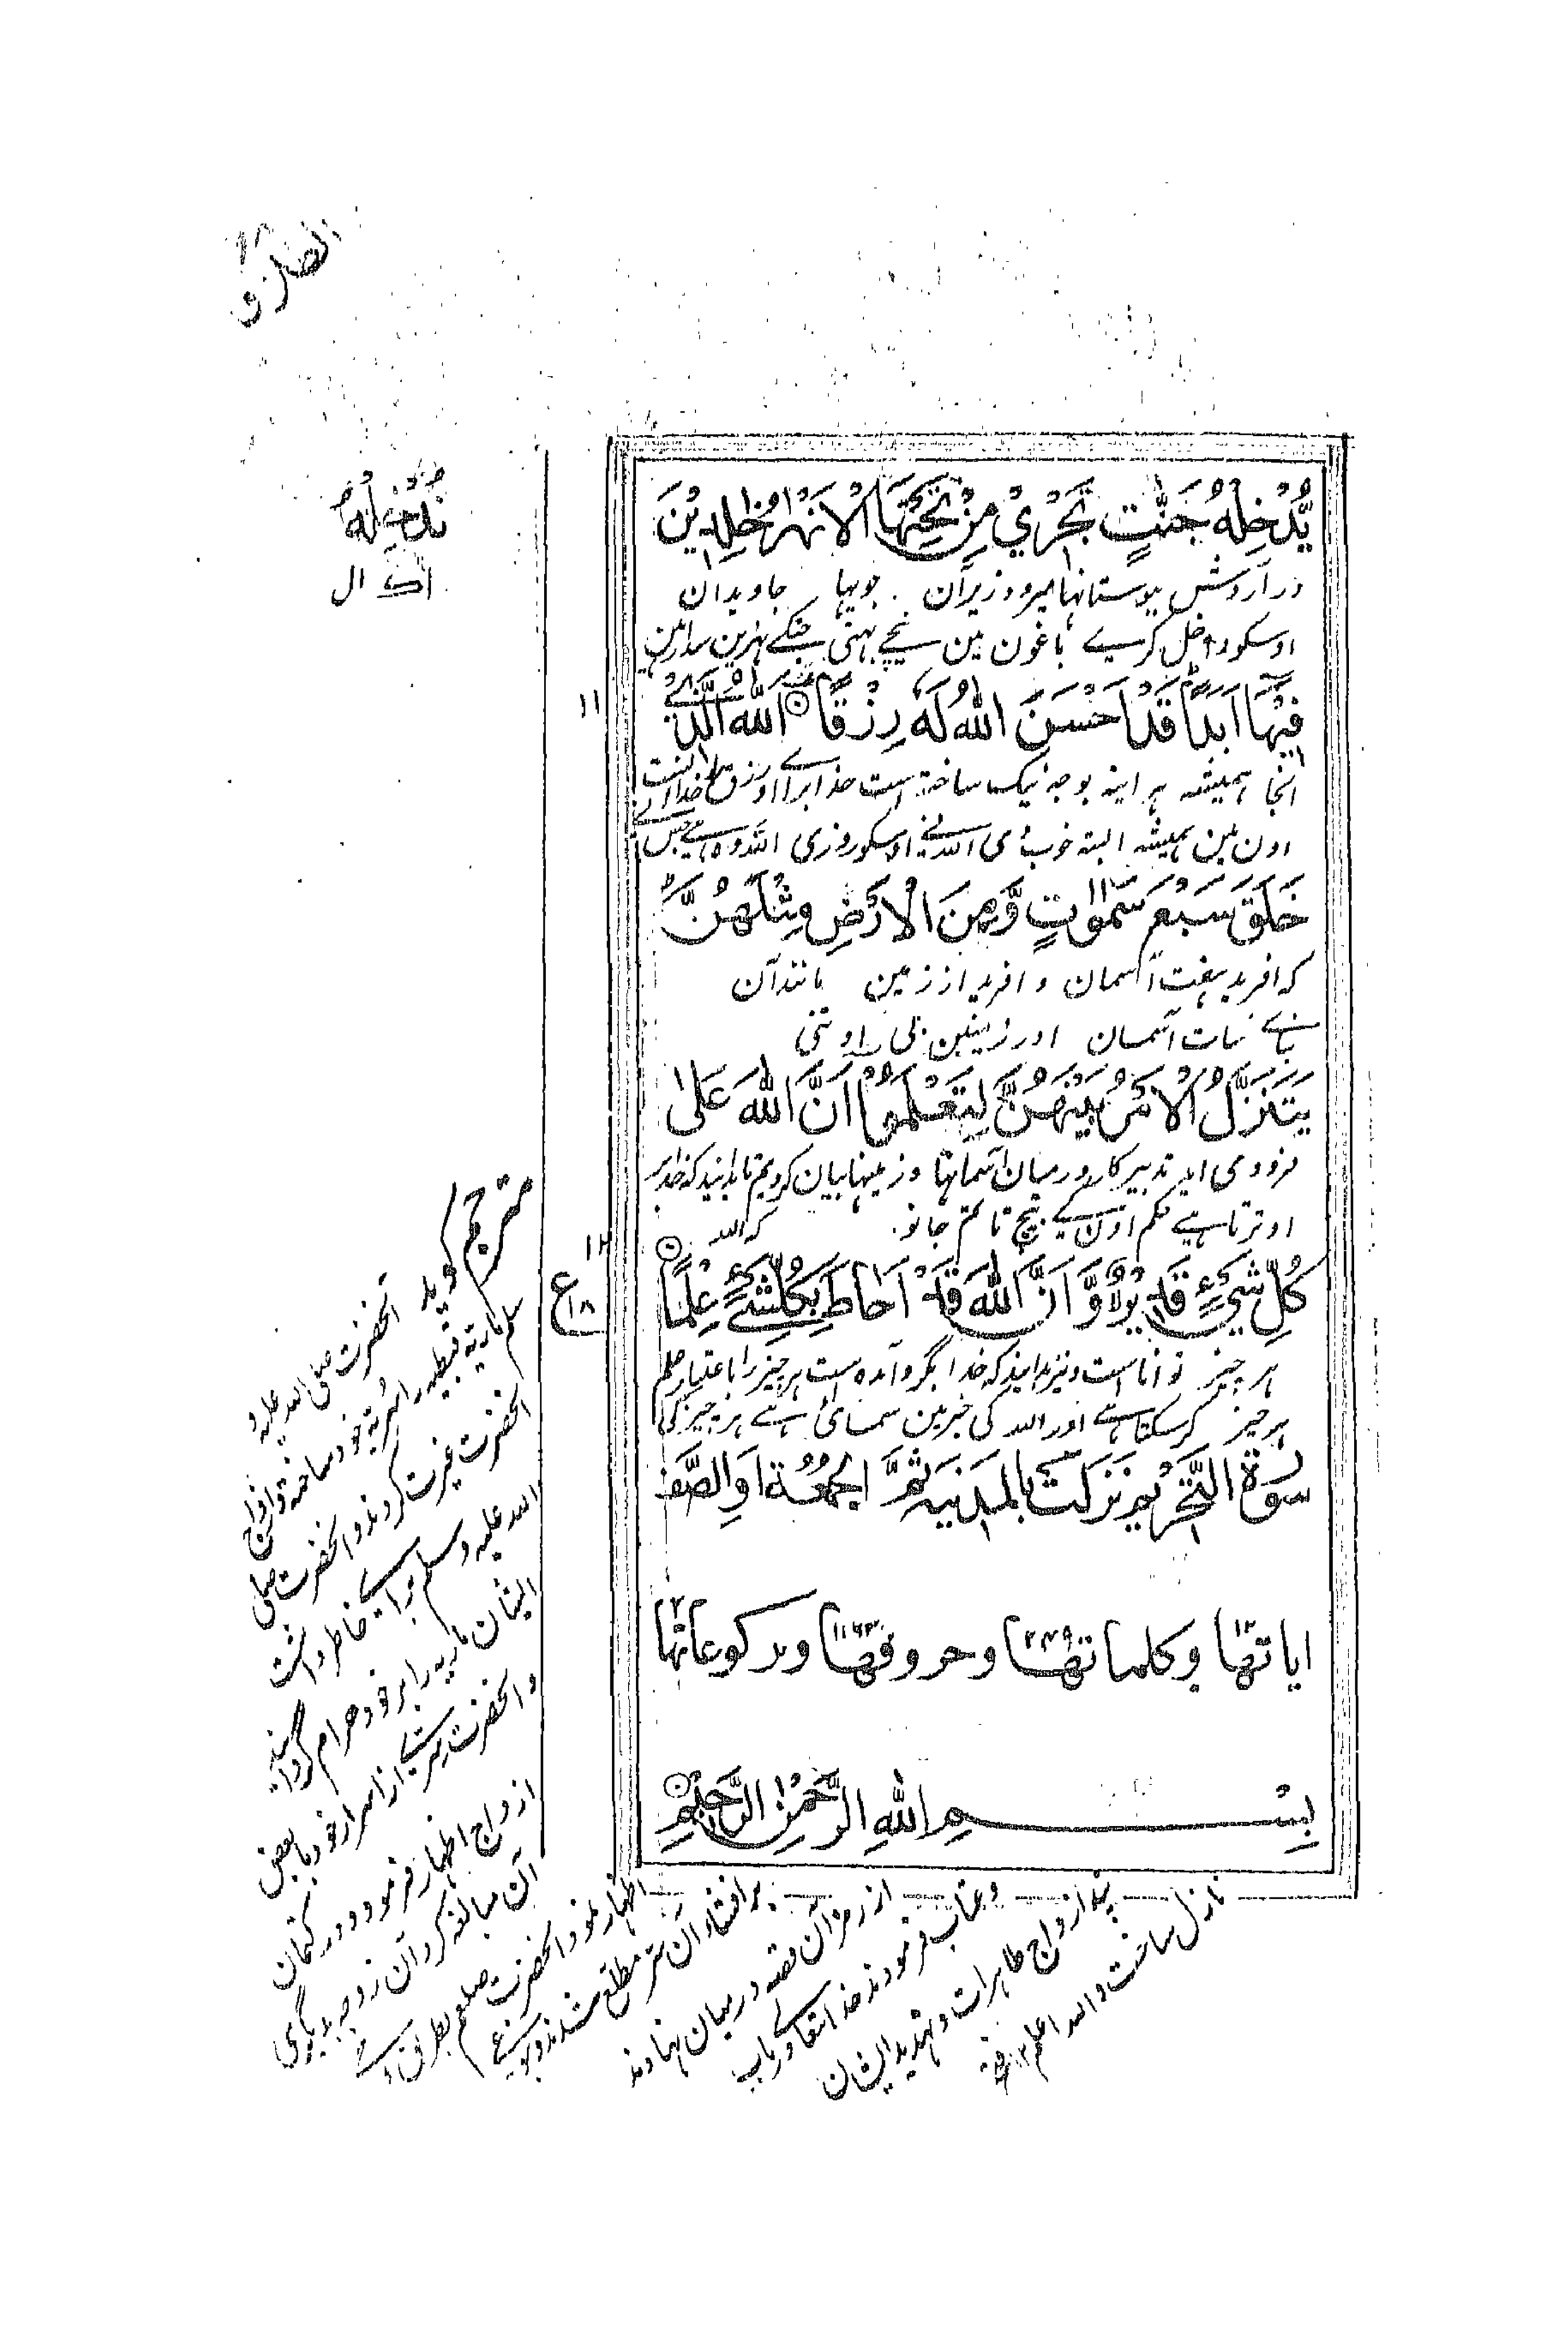 الطلاق
نُدْخِلْهُ
اک ال
يُّدْخِلْهُ جَنّٰتٍ تَجْرِيْ مِنْ تَحْتِهَا الْاَنْهٰرُ خٰلِدِيْنَ
در آردش ببوستانها میرود زیر آن جویها جاویدان
اوسکو داخل کرے باغون مین نیچے بہتی جنکے نہرین سدا رہین
فِيْهَا اَبَدًا قَدْ اَحْسَنَ اللّٰهُ لَهٗ رِزْقًا اَللّٰهُ الَّذِيْ
۱۱
انجا همیشه هر اینه بوجه نیک ساخته است خدا برای او رزق خدا انست
اون مین ہمیشہ البتہ خوب دی اللہ نے اوسکو روزی اللہ وہ ہے جس نے
خَلَقَ سَبْعَ سَمٰوٰتٍ وَّمِنَ الْاَرْضِ مِثْلَهُنَّ
که افرید هفت آسمان و افرید از زمین مانند آن
بنائے سات آسمان اور زمینین بھی اوتنی
يَتَنَزَّلُ الْاَمْرُ بَيْنَهُنَّ لِتَعْلَمُوْا اَنَّ اللّٰهَ عَلٰى
فرود می اید تدبیر کار درمیان آسمانها و زمینها بیان کردیم تا بدانید که خدا بر
اوترتا ہے حکم اون کے بیچ تا تم جانو کہ اللہ
۱۲
كُلِّ شَيْءٍ قَدِيْرٌ وَّاَنَّ اللّٰهَ قَدْ اَحَاطَ بِكُلِّ شَيْءٍ عِلْمًا
ع ۱۸
هر چیز توانا است و نیز بدانید که خدا بگرد آمده است هر چیز را باعتبار علم
ہر چیز کر سکتا ہے اور اللہ کی خبر مین سمائی ہے ہر چیز کی
سُوْرَةُ التَّحْرِيْمِ نَزَلَتْ بِالْمَدِيْنَةِ ثُمَّ الْجُمُعَةِ اَوِ الصَّف
اياتها ۱۲ وكلماتها ۲۴۹ وحروفها ۱۱۶۰ وركوعاتها ۲
بِسْمِ اللّٰهِ الرَّحْمٰنِ الرَّحِيْمِ
مترجم گوید آنحضرت صلی الله علیه و
سلم ماریه قبطیه را سریّه خود ساخته و ازواج
آنحضرت غیرت کردند و آنحضرت صلی
الله علیه وسلم برای خاطر داشت
ایشان ماریه را بر خود حرام گردانید
و آنحضرت سرّے از اسرار خود با بعض
ازواج اظهار فرمود و در کتمان
آن مبالغه کرد آن زوجه بدیگری
اظهار نمود آنحضرت صلعم بطریق
بر افشاء آن سرّ مطلع شدند و بنوعی
از رمز آن قصه درمیان نهادند
و عتاب فرمودند خدا تعالے در باب
پند ازواج طاهرات و تهدید ایشان
نازل ساخت والله اعلم ۱۲